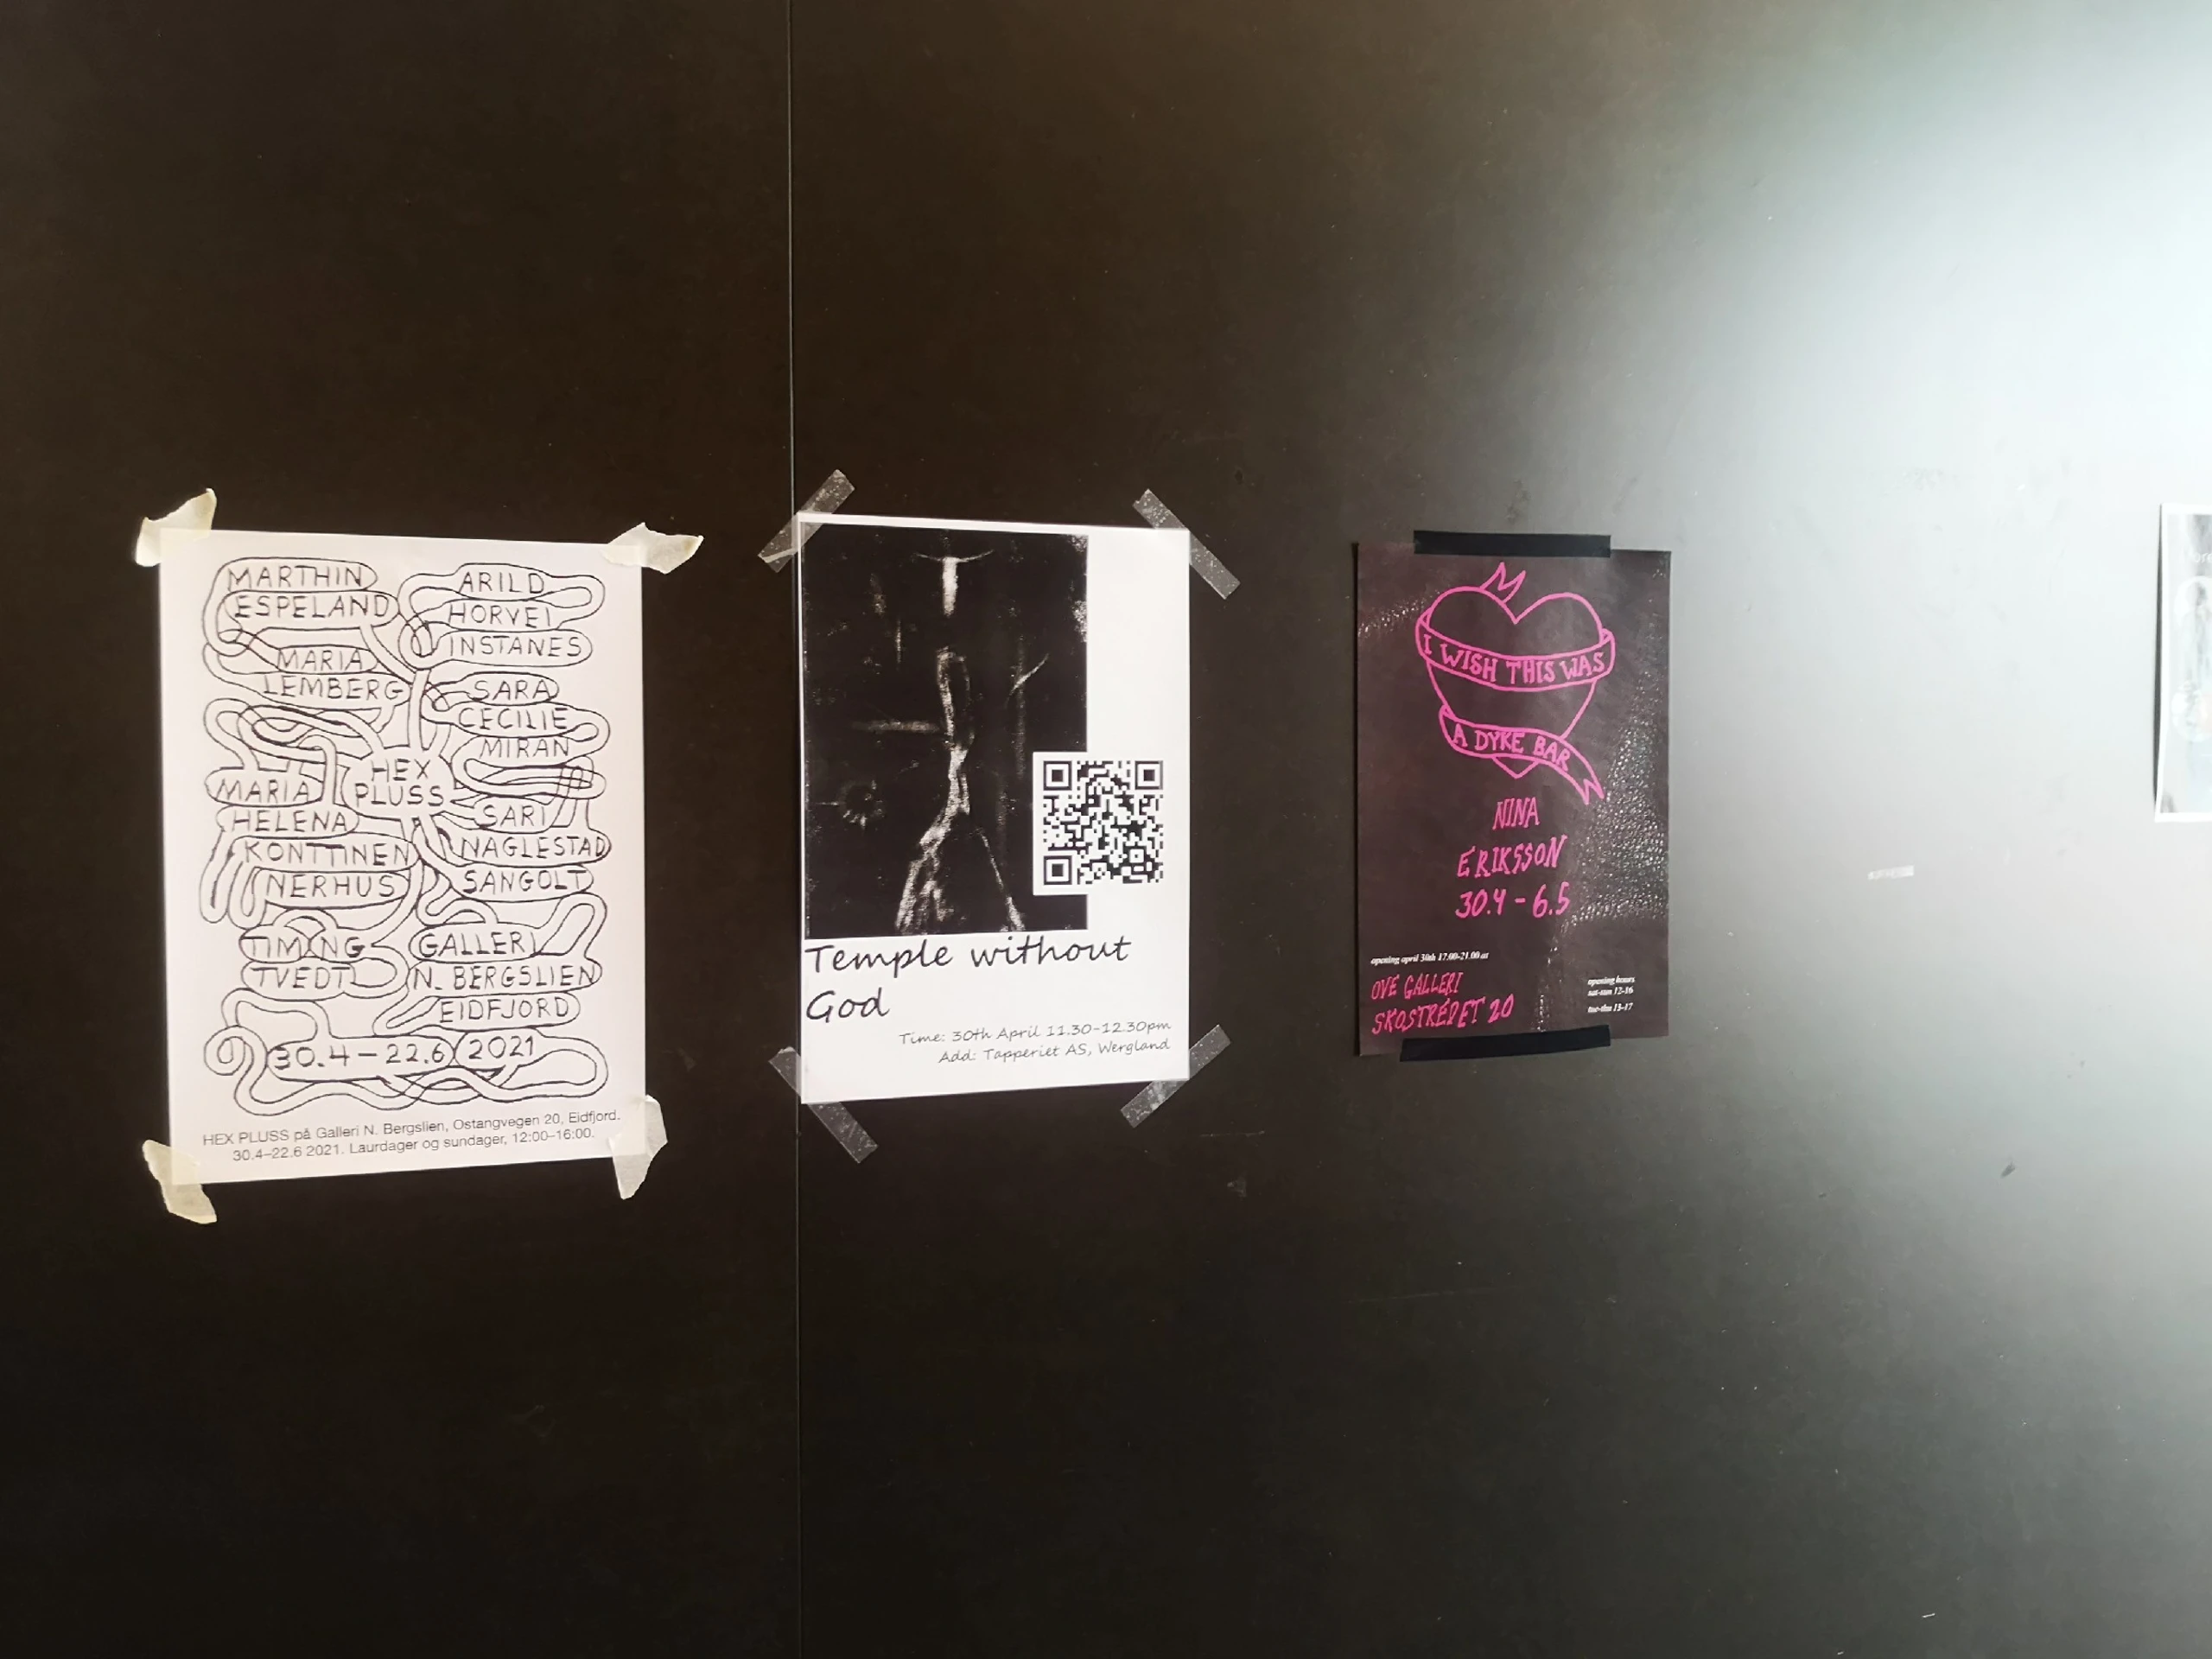 MARTHIN
ESPELAND
MARIA
LEMBERG
MARIA
HELENA
KONTTINEN
NERHUS
TIMNG
TVEDT
ARILD
HORVEI
INSTANES
SARA
CECILIE
MIRAN
HEX
PLUSS
SARI
NAGLESTAD
SANGOLT
GALLERI
N. BERGSLIEN
EIDFJORD
30.4 – 22.6 2021
HEX PLUSS på Galleri N. Bergslien, Ostangvegen 20, Eidfjord.
30.4–22.6 2021. Laurdager og sundager, 12:00–16:00.
Temple without
God
Time: 30th April 11.30-12.30pm
Add: Tapperiet AS, Wergland
I WISH THIS WAS
A DYKE BAR
NINA
ERIKSSON
30.4 - 6.5
opening april 30th 17.00-21.00 at
OVE GALLERI
SKOSTREDET 20
opening hours
sat-sun 12-16
tue-thu 13-17